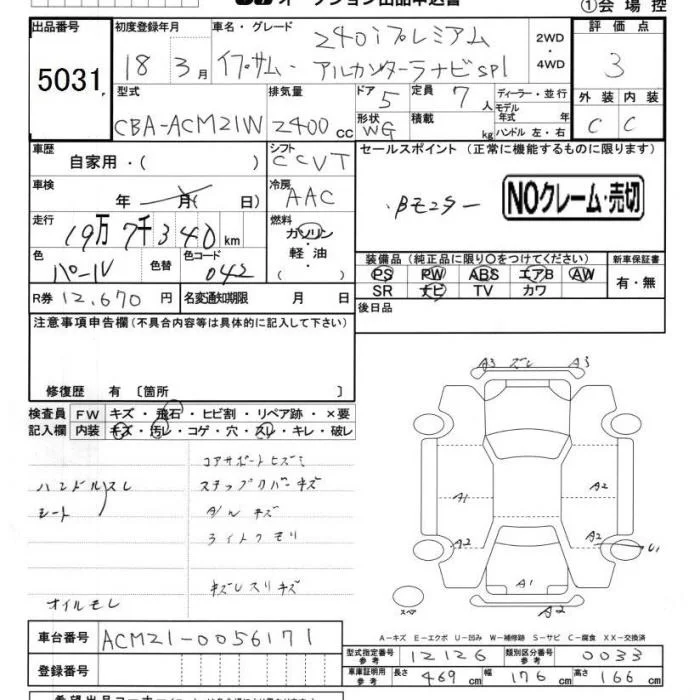 オークション出品申込書
①会場控
出品番号 初度登録年月 車名・グレード 2WD・4WD 評価点
5031 18 3月 イプサム・ 240iプレミアム アルカンターラナビspl 3
型式 排気量 ドア 5 定員 7人 ディーラー・並行 外装 内装
CBA-ACM21W 2400cc 形状 WG 積載 kg モデル年式 年 ハンドル 左・右 C C
車歴 自家用・( ) シフト CCVT セールスポイント (正常に機能するものに限ります)
車検 年 月( 日) 冷房 AAC NOクレーム・売切
走行 19万7千340km 燃料 ガソリン・軽油
色 パール 色替 色コード 042 装備品 (純正品に限り○をつけてください) 新車保証書
PS PW ABS エアB AW 有・無
SR ナビ TV カワ
R券 12,670円 名変通知期限 月 日 後日品
注意事項申告欄 (不具合内容等は具体的に記入して下さい)
修復歴 有 〔箇所 〕
検査員 FW キズ・飛石・ヒビ割・リペア跡・×要
記入欄 内装 キズ・汚レ・コゲ・穴・スレ・キレ・破レ
コアサポートヒズミ
ハンドルスレ ステップカバーキズ
シート A/W キズ
ライトクモリ
ガラスリキズ
オイルモレ
A3 ズレ A3
A1 A2
A2 A2 U1
A1
スペア A2
A-キズ E-エクボ U-凹み W-補修跡 S-サビ C-腐食 XX-交換済
車台番号 ACM21-0056171 型式指定番号 参考 12126 類別区分番号 参考 0033
登録番号 車庫証明用 参考 長さ 469cm 幅 176cm 高さ 166cm